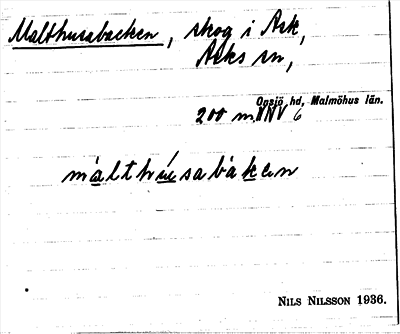 Malthusabacken, skog i Ask,
Asks sn,
Onsjö hd, Malmöhus län.
200 m. NNV 6
málthúsabàken
NILS NILSSON 1936.